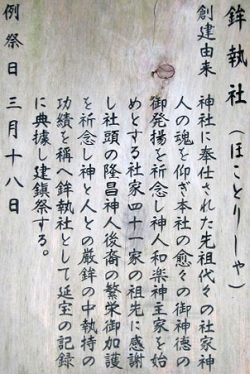 鉾執社（ほことりしゃ）
創建由来　神社に奉仕された先祖代々の社家神
人の魂を仰ぎ本社の愈々の御神徳の
御発揚を祈念し神人和楽神主家を始
めとする社家四十一家の祖先に感謝
し社頭の隆昌神人後裔の繁栄御加護
を祈念し神と人との厳鉾の中執持の
功績を稱へ鉾執社として延宝の記録
に典據し建鎮祭する。
例祭日　三月十八日